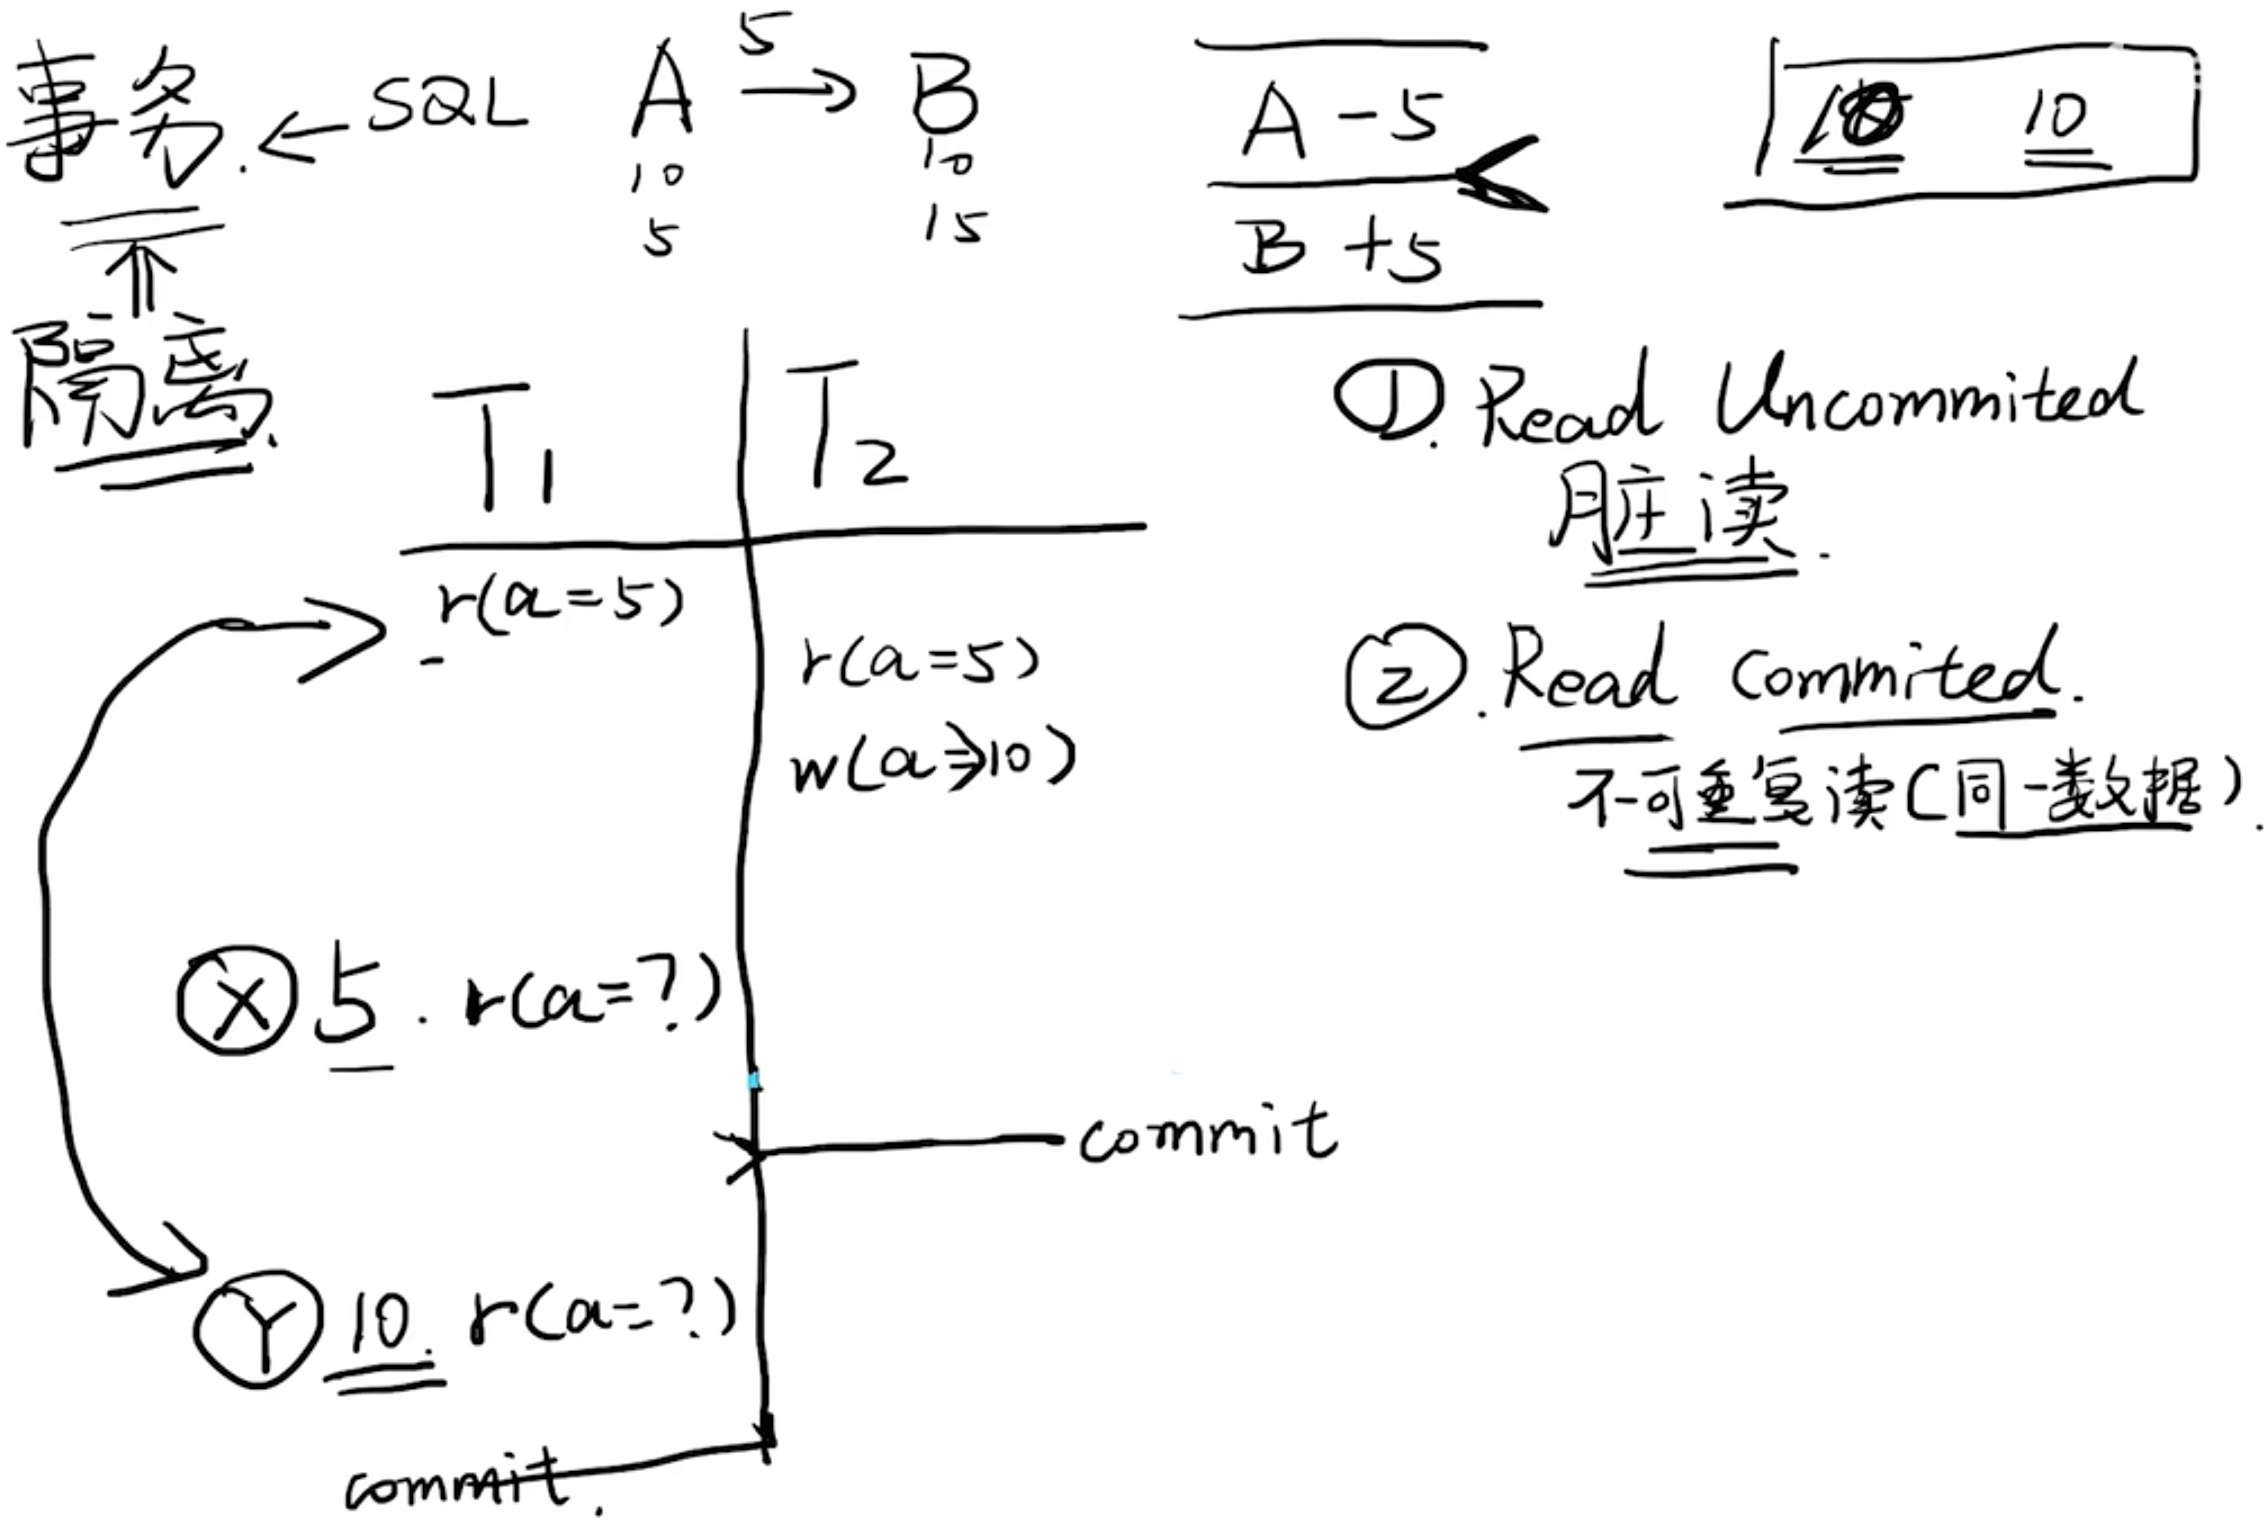 事务. ← SQL A 5→ B
10 10
5 15
A - 5
B + 5
10
隔离.
T1 T2
r(a=5)
r(a=5)
w(a⇒10)
X 5. r(a=?)
commit
Y 10. r(a=?)
commit.
①. Read Uncommited
脏读.
②. Read Commited.
不可重复读(同一数据).